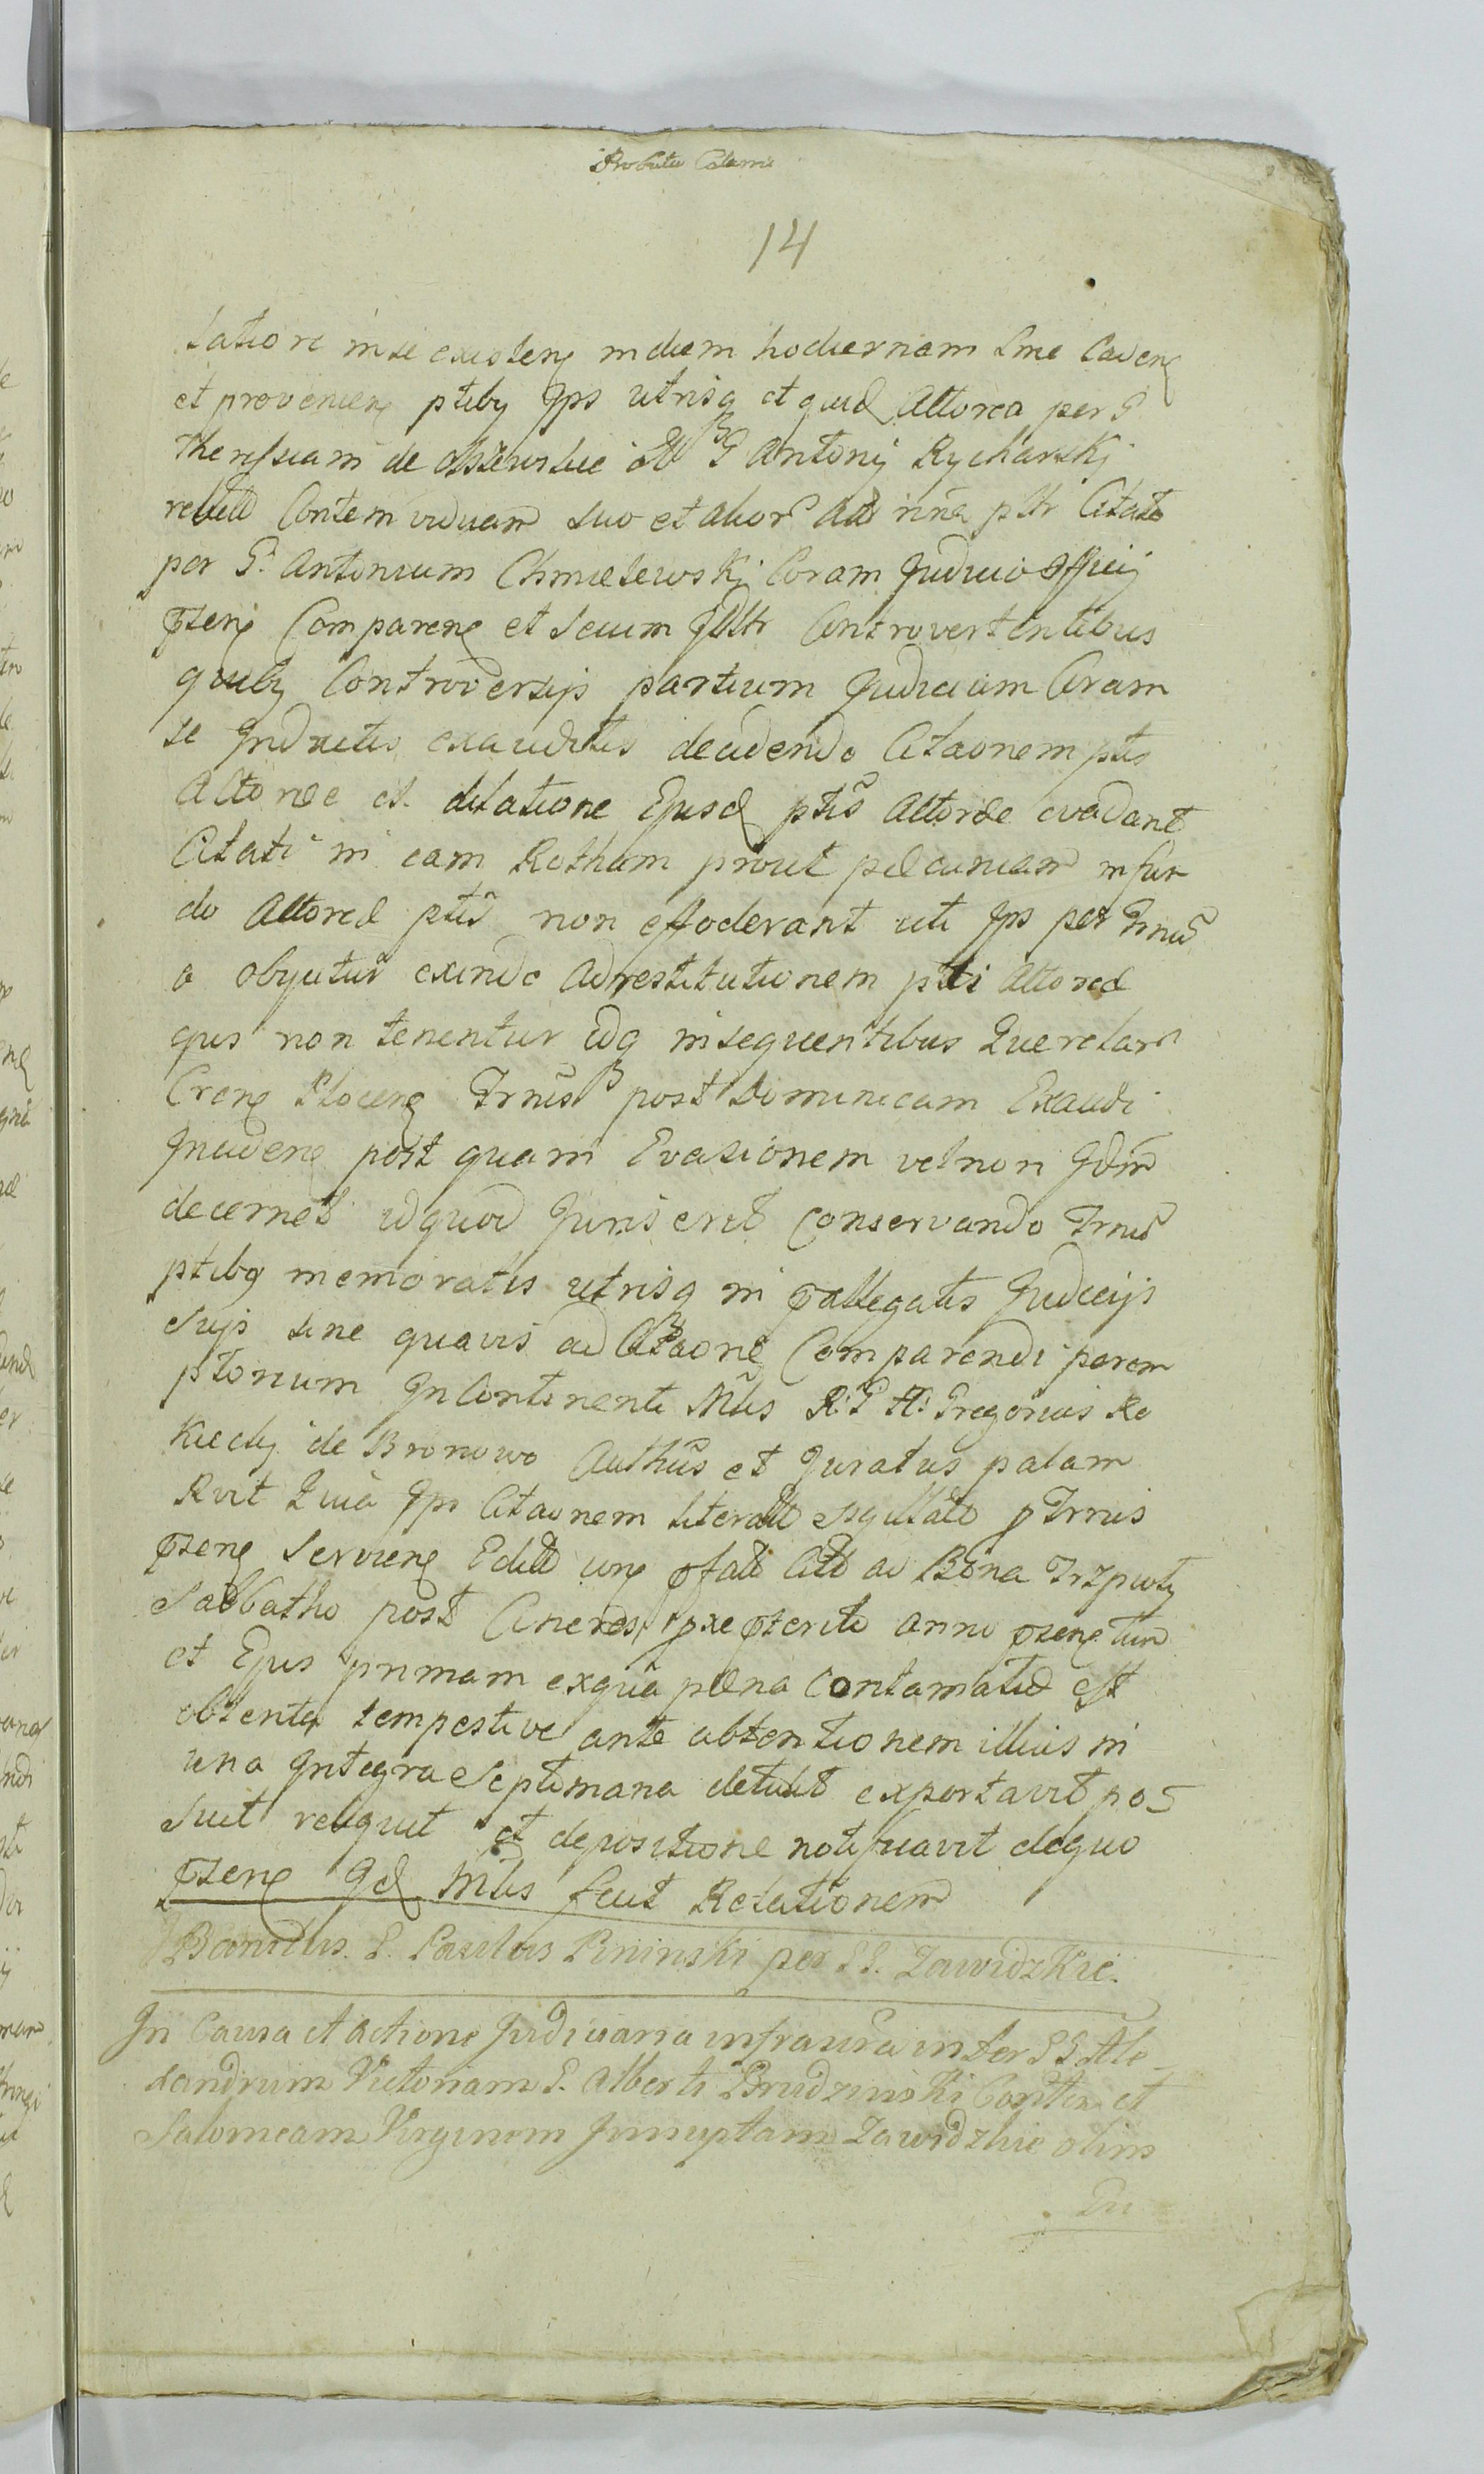 14
in se existen in diem hodiernam Sme Caden
et provenien ptiby Jps utrisq et quid Actorea per G
de Antonij Rycharskj
Contem viduam suo et alior nne pltr Citato
per G. Antonium Chmielewskj Coram Judicio Officij
pzen Comparen et secum Controvertentibus
quiby Controversijs partium Judicium Coram
se Inductis exauditis decidendo Citaonem ptis
Actoree et dilatione Ejusd ptis Actoree evadant
Citati in eam Rotham prout pecuniam in fun
do Actoree ptis non effoderant uti Jps per Trnu
a obijcitur exinde ad restitutionem pti Actoree
ejus non tenentur idq insequentibus Querelar
Cren Plocen Trnis post Dominicam Exaudi
Inciden post quam Evasionem vel non Jdm
decernet id quod Juris erit Conservando Trnu
ptiby memoratis utrisq in pallegatis Judicijs
suis sine quavis ad Citaone Comparendi perem
ptorium In Continenti Mlis R. P. H. Gregorius Ro
kicky de Bronowo Authus et Juratus palam
Rvit Quia Jps Citaonem Literall Sigillatt p Trnis
pzen Servien pfatt Citt ad Bona
Sabbatho post Cineres pxe pterito anni pzen
et Ejus primam ex qua pena Contamatie est
obtenta tempestive ante obtentionem illius in
una Integra Septimana detulit exportavit po
suit reliquit et depositione notificavit de quo
pzen Jd Mlis fecit Relationem
Banitus. G. Paulus Pininski per GG. Zawidzkie.
In Causa et actione Judiciaria infrascra inter GG Ale
xandrum Victoriam G. Alberti Brudzinski Contem et
Salomeam Virginem Innuptam Zawidzkie olim